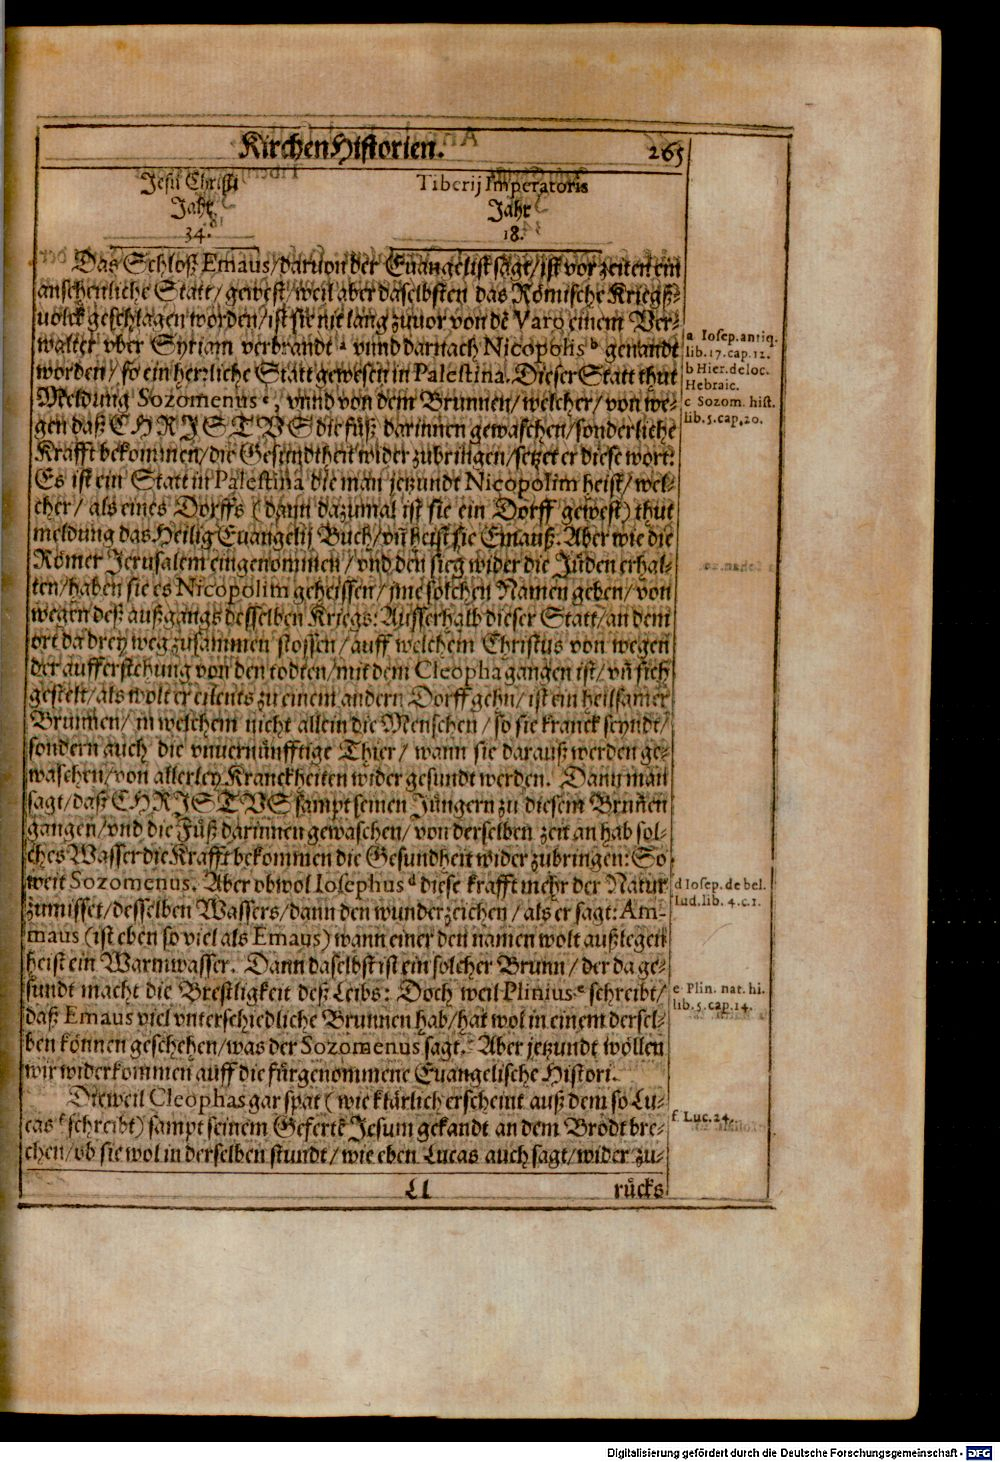 Kirchen Historien. 265
Jesu Christi Tiberij Imperatoris
Jahr Jahr
34. 18.
Das Schloß Emaus/daruon der Euangelist sagt/ist vor zeiten ein
ansehenliche Statt/ gewest/weil aber daselbsten das Römische Kriegß-
uolck geschlagen worden/ist sie nit lang zuuor von dē Varo einem Ver-
walter vber Syriam verbrandt a vnnd darnach Nicopolis b genandt
worden/ so ein herrliche Statt gewesen in Palestina. Dieser Statt thut
Meldung Sozomenus c, vnnd von dem Brunnen/welcher/von we-
gen daß CHRISTVS die füß darinnen gewaschen/sonderliche
Krafft bekommen/die Gesundtheit wider zubringen/setzet er diese wort:
Es ist ein Statt in Palestina die man jetzundt Nicopolim heist/wel-
cher/ als eines Dorffs (dann dazumal ist sie ein Dorff gewest) thut
meldung das Heilig Euangelij Buch/vñ heist sie Emauß. Aber wie die
Römer Jerusalem eingenommen/vnd den sieg wider die Jüden erhal-
ten/haben sie es Nicopolim geheissen/jme solchen Namen geben/von
wegen deß außgangs desselben Kriegs: Ausserhalb dieser Statt/an dem
ort da drey weg zusammen stossen/auff welchem Christus von wegen
der aufferstehung von den todten/mit dem Cleopha gangen ist/vñ sich
gestelt/als wolt er eilents zu einem andern Dorff gehn/ist ein heilsamer
Brunnen/in welchem nicht allein die Menschen/so sie kranck seyndt/
sondern auch die vnuernünfftige Thier/ wann sie darauß werden ge-
waschen/von allerley Kranckheiten wider gesundt werden. Dann man
sagt/daß CHRISTVS sampt seinen Jüngern zu diesem Brunnen
gangen/vnd die Füß darinnen gewaschen/von derselben zeit an hab sol-
ches Wasser die Krafft bekommen die Gesundheit wider zubringen: So
weit Sozomenus. Aber obwol Iosephus d diese krafft mehr der Natur
zumisset/desselben Wassers/dann den wunderzeichen/als er sagt: Am-
maus (ist eben so viel als Emaus) wann einer den namen wolt außlegen
heist ein Warmwasser. Dann daselbst ist ein solcher Brunn/der da ge-
sundt macht die Brestligkeit deß Leibs: Doch weil Plinius e schreibt/
daß Emaus viel vnterschiedliche Brunnen hab/hat wol in einem dersel-
ben können geschehen/was der Sozomenus sagt. Aber jetzundt wöllen
wir widerkommen auff die fürgenommene Euangelische Histori.
Dieweil Cleophas gar spat (wie klärlich erscheint auß dem so Lu-
cas f schreibt) sampt seinem Gefertē Jesum gekandt an dem Brodt bre-
chen/ob sie wol in derselben stundt/wie eben Lucas auch sagt/wider zu-
Ll rücks
a Iosep. antiq.
lib. 17. cap. 12.
b Hier. de loc.
Hebraic.
c Sozom. hist.
lib. 5. cap. 20.
d Iosep. de bel.
Iud. lib. 4. c. 1.
e Plin. nat. hi.
lib. 5. cap. 14.
f Luc. 24.
Digitalisierung gefördert durch die Deutsche Forschungsgemeinschaft - DFG